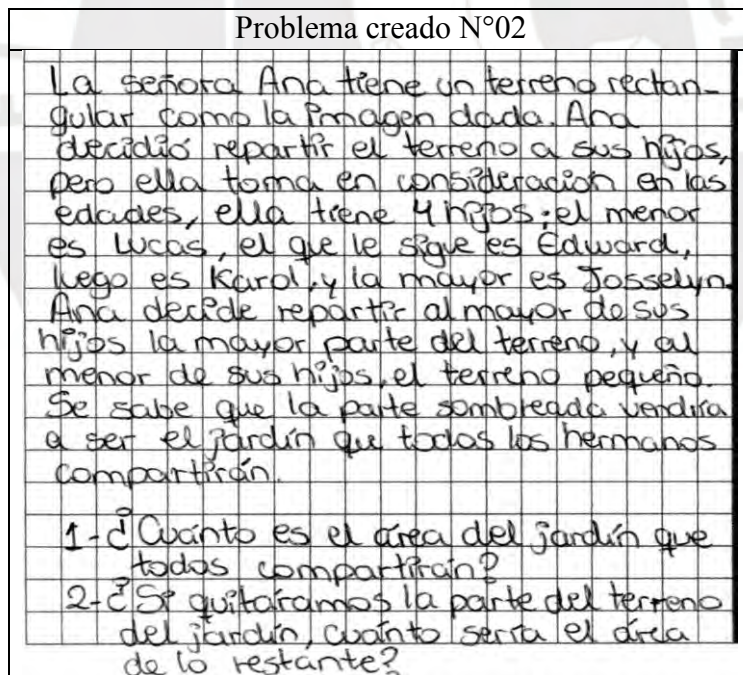 Problema creado N°02
La señora Ana tiene un terreno rectan-
gular como la imagen dada. Ana
decidió repartir el terreno a sus hijos,
pero ella toma en consideración en las
edades, ella tiene 4 hijos; el menor
es Lucas, el que le sigue es Edward,
luego es Karol, y la mayor es Josselyn.
Ana decide repartir al mayor de sus
hijos la mayor parte del terreno, y al
menor de sus hijos, el terreno pequeño.
Se sabe que la parte sombreada vendría
a ser el jardín que todos los hermanos
compartirán.
1-¿Cuánto es el área del jardín que
todos compartirán?
2-¿Si quitáramos la parte del terreno
del jardín, cuánto sería el área
de lo restante?